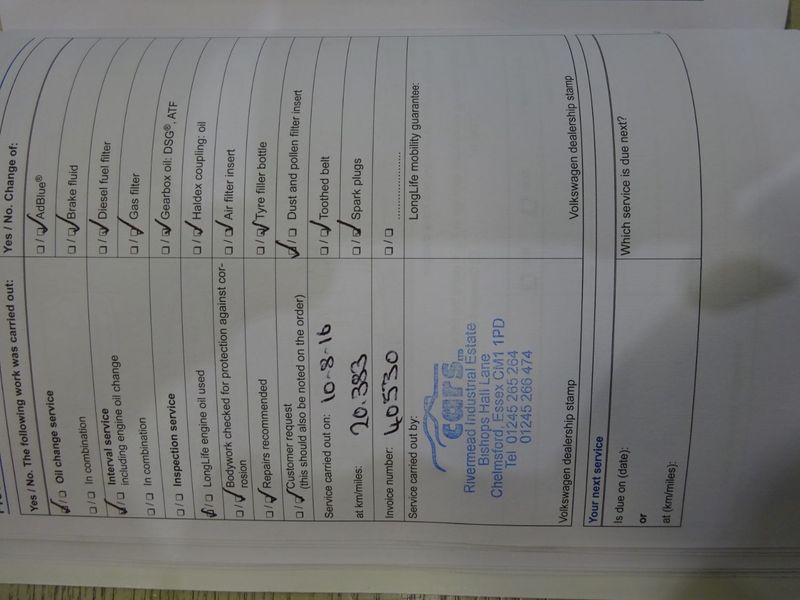 Yes / No. The following work was carried out:
☑ / ☐ Oil change service
☐ / ☐ In combination
☑ / ☐ Interval service
including engine oil change
☐ / ☐ In combination
☐ / ☐ Inspection service
☑ / ☐ LongLife engine oil used
☐ / ☑ Bodywork checked for protection against cor-
rosion
☐ / ☑ Repairs recommended
☐ / ☑ Customer request
(this should also be noted on the order)
Service carried out on: 10-8-16
at km/miles: 20.383
Invoice number: 40530
Service carried out by:
cars LTD
Rivermead Industrial Estate
Bishops Hall Lane
Chelmsford, Essex CM1 1PD
Tel 01245 265 264
01245 266 474
Volkswagen dealership stamp
Yes / No. Change of:
☐ / ☑ AdBlue®
☐ / ☑ Brake fluid
☐ / ☑ Diesel fuel filter
☐ / ☑ Gas filter
☐ / ☑ Gearbox oil: DSG®, ATF
☐ / ☑ Haldex coupling: oil
☐ / ☑ Air filter insert
☐ / ☑ Tyre filler bottle
☑ / ☐ Dust and pollen filter insert
☐ / ☑ Toothed belt
☐ / ☑ Spark plugs
☐ / ☐ ........................
LongLife mobility guarantee:
Volkswagen dealership stamp
Your next service
Is due on (date):
or
at (km/miles):
Which service is due next?